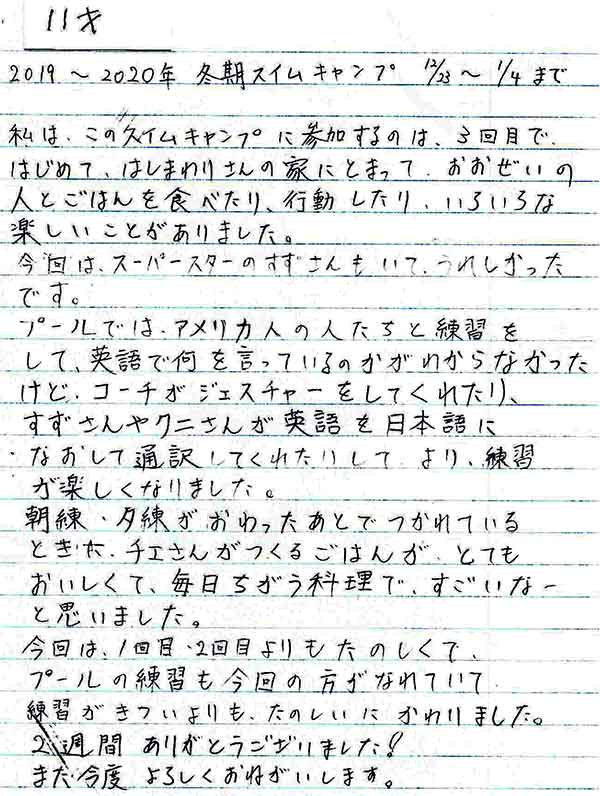 11才
2019～2020年 冬期スイムキャンプ 12/23～1/4まで
私は、このスイムキャンプに参加するのは、3回目で、
はじめて、はしまわりさんの家にとまって、おおぜいの
人とごはんを食べたり、行動したり、いろいろな
楽しいことがありました。
今回は、スーパースターのすずさんもいて、うれしかった
です。
プールでは、アメリカ人の人たちと練習を
して、英語で何を言っているのかがわからなかった
けど、コーチがジェスチャーをしてくれたり、
すずさんやクニさんが英語を日本語に
なおして通訳してくれたりして、より、練習
が楽しくなりました。
朝練・夕練がおわったあとでつかれている
ときた、チエさんがつくるごはんが、とても
おいしくて、毎日ちがう料理で、すごいなー
と思いました。
今回は、1回目・2回目よりもたのしくて、
プールの練習も今回の方がなれていて
練習がきついよりも、たのしいにかわりました。
2週間ありがとうございました!
また今度よろしくおねがいします。